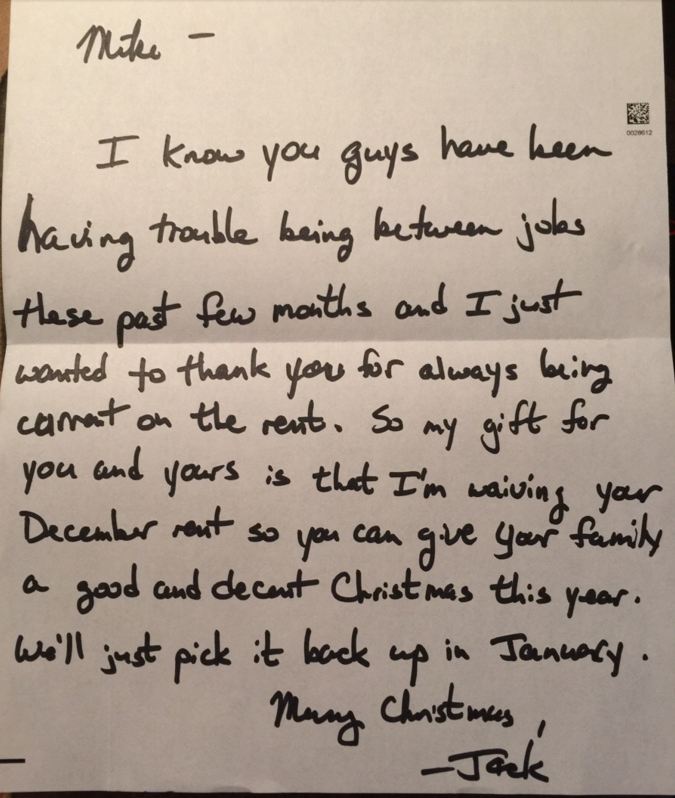 Mike –
0028612
I know you guys have been
having trouble being between jobs
these past few months and I just
wanted to thank you for always being
current on the rent. So my gift for
you and yours is that I'm waiving your
December rent so you can give your family
a good and decent Christmas this year.
We'll just pick it back up in January.
Merry Christmas,
–Jack